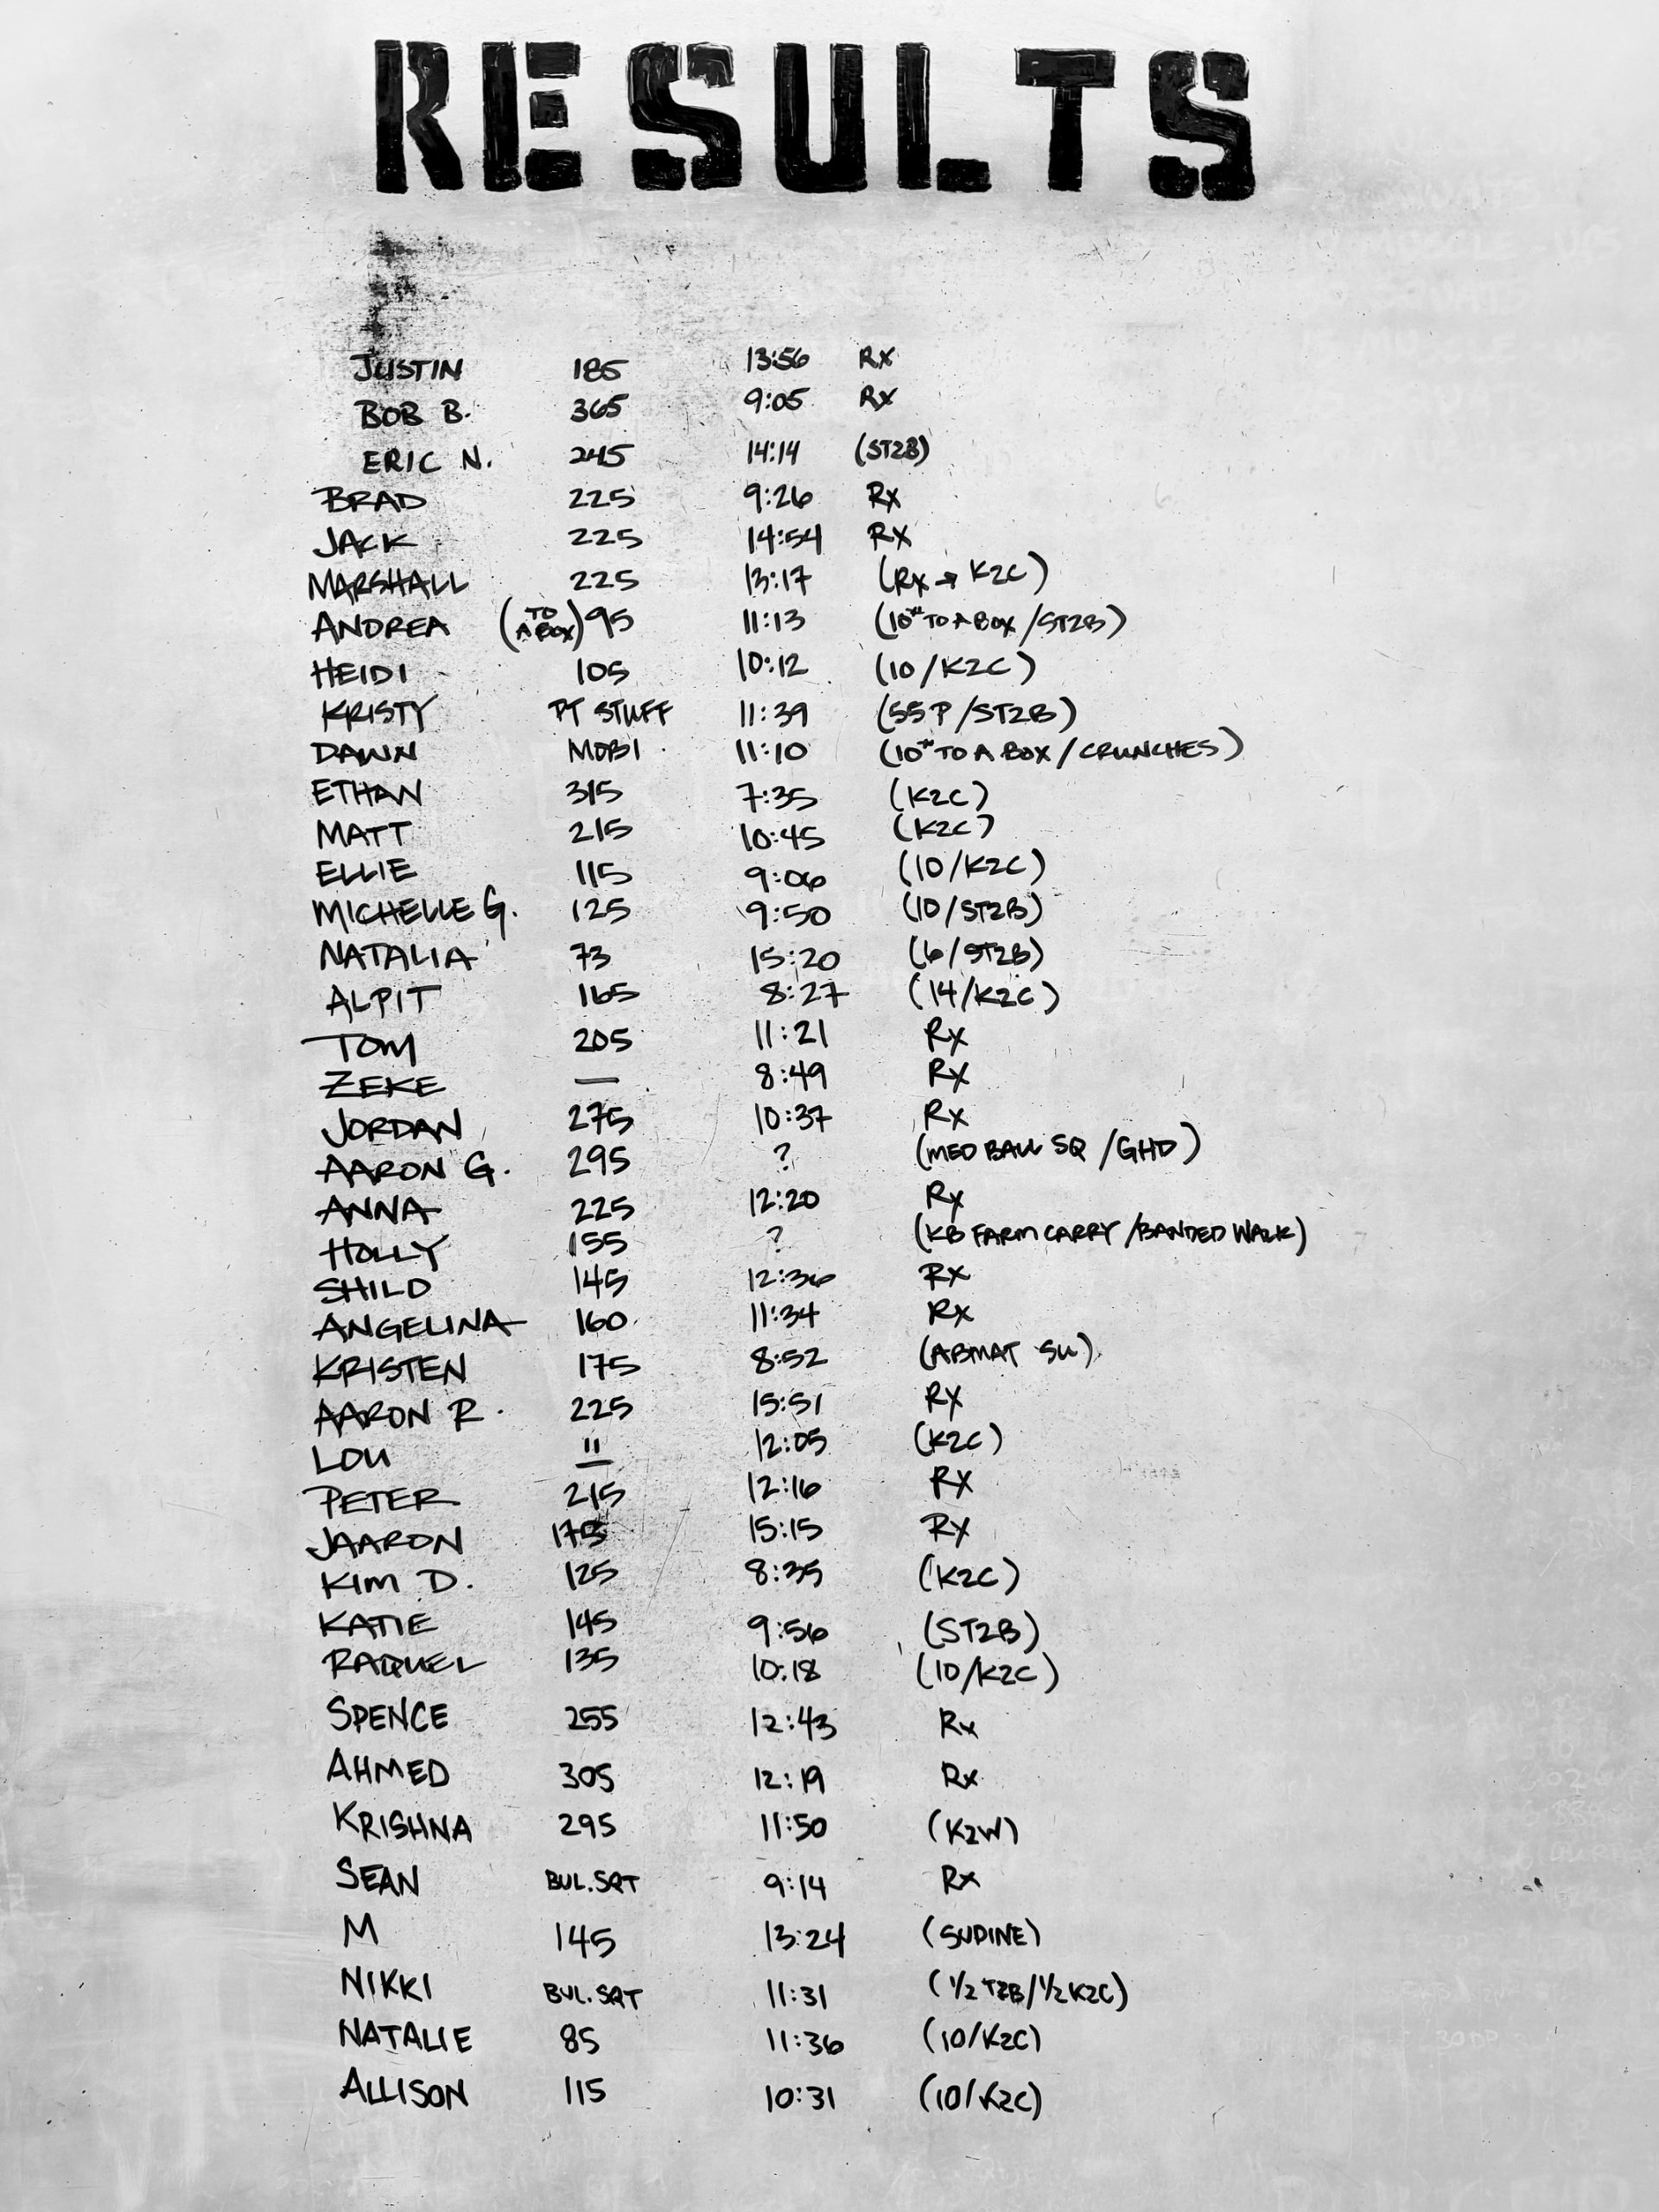 RESULTS
JUSTIN 185 13:56 RX
BOB B. 365 9:05 RX
ERIC N. 245 14:14 (ST2B)
BRAD 225 9:26 RX
JACK 225 14:54 RX
MARSHALL 225 13:17 (RX → K2C)
ANDREA (TO A BOX) 95 11:13 (10# TO A BOX/ST2B)
HEIDI 105 10:12 (10/K2C)
KRISTY PT STUFF 11:39 (55P/ST2B)
DAWN MOBI 11:10 (10# TO A BOX/CRUNCHES)
ETHAN 315 7:35 (K2C)
MATT 215 10:45 (K2C)
ELLIE 115 9:06 (10/K2C)
MICHELLE G. 125 9:50 (10/ST2B)
NATALIA 73 15:20 (6/ST2B)
ALPIT 165 8:27 (14/K2C)
TOM 205 11:21 RX
ZEKE — 8:49 RX
JORDAN 275 10:37 RX
AARON G. 295 ? (MED BALL SQ/GHD)
ANNA 225 12:20 RX
HOLLY 155 ? (KB FARM CARRY/BANDED WALK)
SHILO 145 12:36 RX
ANGELINA 160 11:34 RX
KRISTEN 175 8:52 (ABMAT SU)
AARON R. 225 15:51 RX
LOU " 12:05 (K2C)
PETER 215 12:16 RX
JAARON 175 15:15 RX
KIM D. 125 8:35 (K2C)
KATIE 145 9:56 (ST2B)
RAQUEL 135 10:18 (10/K2C)
SPENCE 255 12:43 Rx
AHMED 305 12:19 Rx
KRISHNA 295 11:50 (K2W)
SEAN BUL.SQT 9:14 Rx
M 145 13:24 (SUPINE)
NIKKI BUL.SQT 11:31 (1/2 T2B/1/2 K2C)
NATALIE 85 11:36 (10/K2C)
ALLISON 115 10:31 (10/K2C)